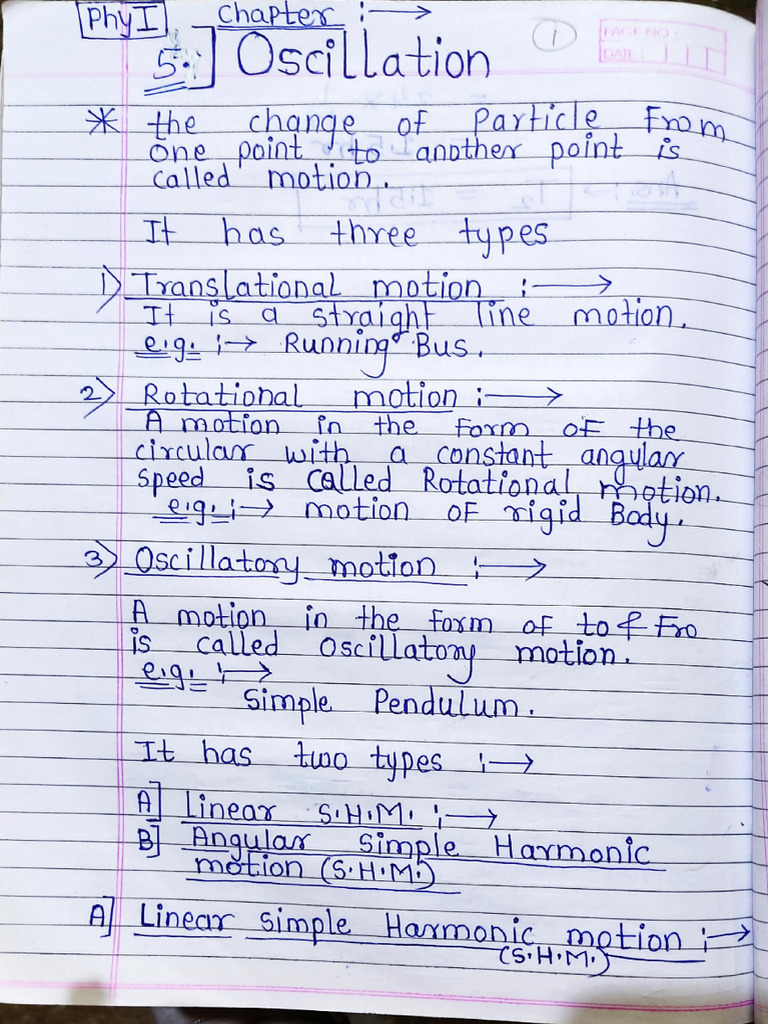 Phy I
Chapter :→
1
PAGE NO :
DATE :
5.] Oscillation
* the change of Particle From
one point to another point is
called motion.
It has three types
1) Translational motion :→
It is a straight line motion.
e.g. :→ Running Bus.
2) Rotational motion :→
A motion in the form of the
circular with a constant angular
speed is called Rotational motion.
e.g. :→ motion of rigid Body.
3) Oscillatory motion :→
A motion in the form of to & Fro
is called Oscillatory motion.
e.g. :→
Simple Pendulum.
It has two types :→
A] Linear S.H.M. :→
B] Angular Simple Harmonic
motion (S.H.M.)
A] Linear Simple Harmonic motion :→
(S.H.M.)